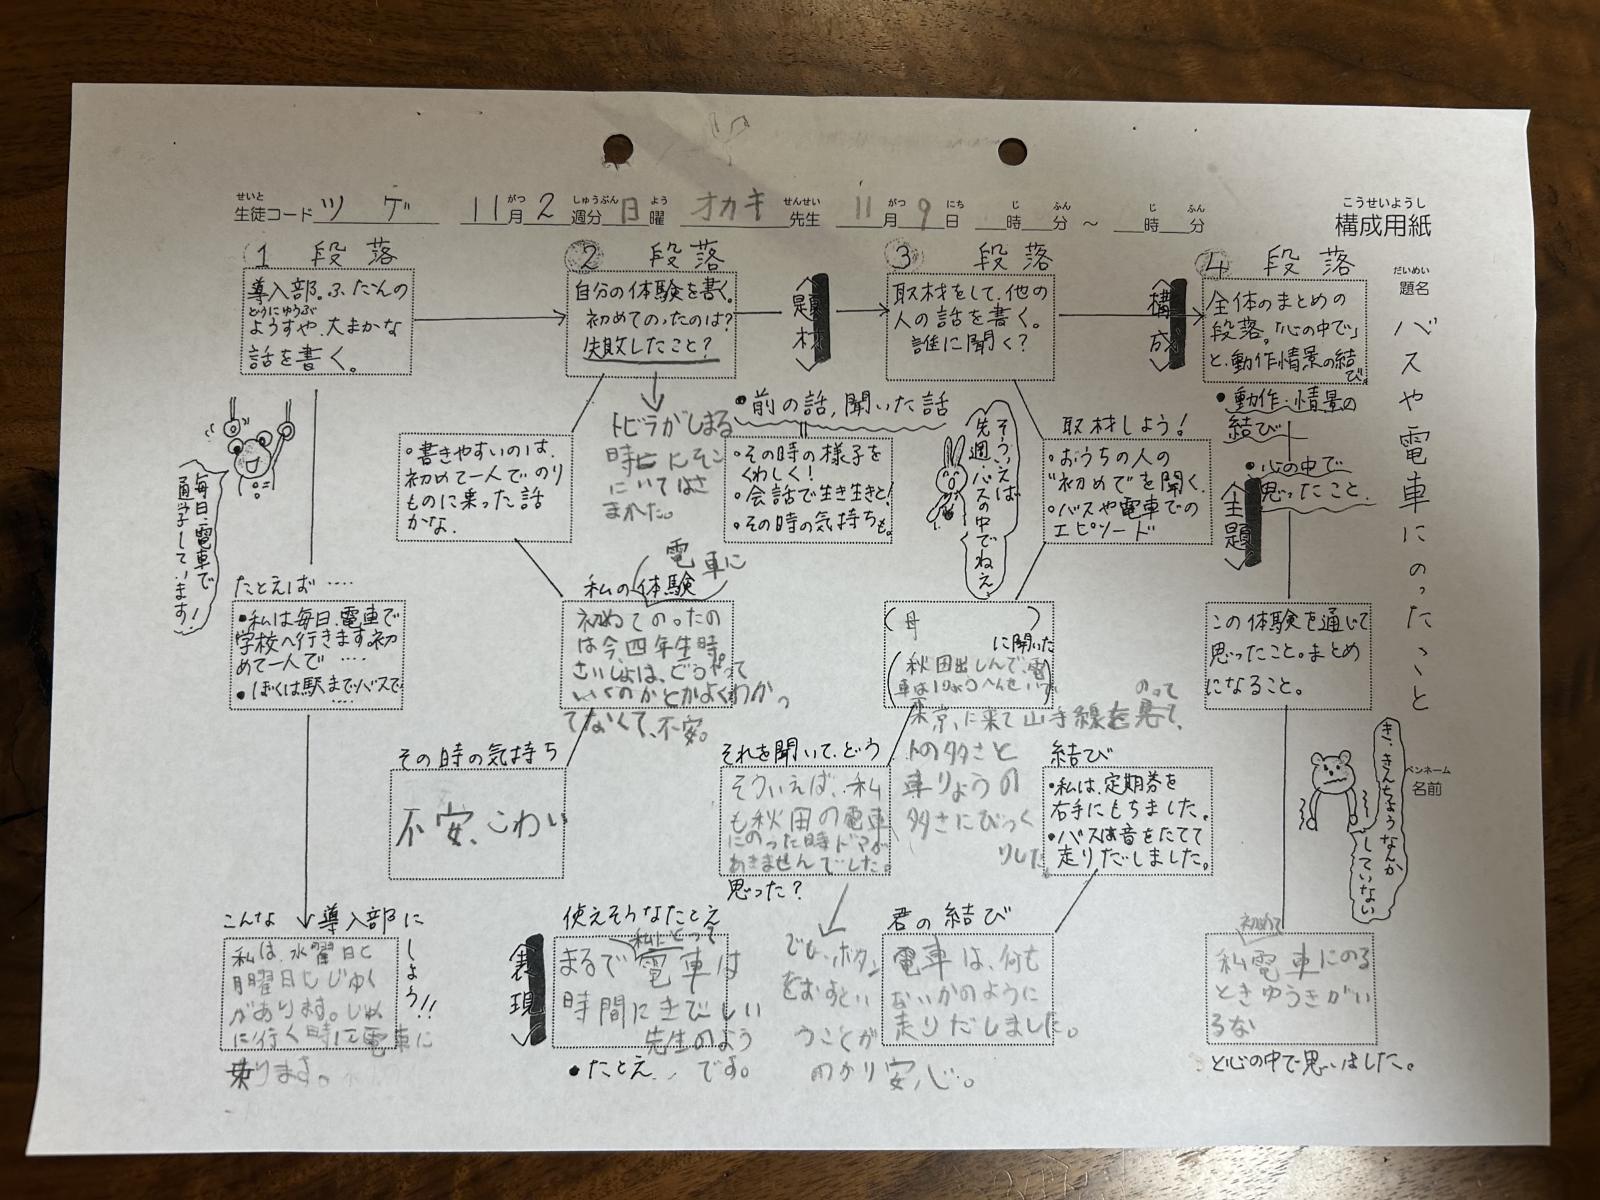 せいと
生徒コード ツゲ 11月2週分日曜 オカキ先生 11月9日 時 分 〜 時 分
がつ しゅうぶん よう せんせい がつ にち じ ふん じ ふん
こうせいようし
構成用紙
だいめい
題名
バスや電車にのったこと
ペンネーム
名前
① 段落
導入部。ふだんの
どうにゅうぶ
ようすや、大まかな
話を書く。
毎日、電車で
通学しています!
たとえば ‥‥
•私は毎日、電車で
学校へ行きます。初
めて一人で ‥‥
•ぼくは駅までバスで
‥‥
こんな導入部に
しよう!!
私は、水曜日と
月曜日にじゅく
があります。じゅく
に行く時に電車に
乗ります。
② 段落
自分の体験を書く。
初めてのったのは?
失敗したこと?
トビラがしまる
時にそこ
にいてはさ
まれた。
•書きやすいのは、
初めて一人でのり
ものに乗った話
かな。
•前の話,聞いた話
•その時の様子を
くわしく!
•会話で生き生きと!
•その時の気持ちも。
電車に
私の体験
初めてのったの
は今四年生時。
さいしょは、どうやって
いくのかとかよくわかっ
てなくて、不安。
その時の気持ち
不安、こわい
表現
使えそうなたとえ
私にとって
まるで電車は
時間にきびしい
先生のよう
•たとえ です。
題材
③ 段落
取材をして、他の
人の話を書く。
誰に聞く?
そういえば
先週、バスの中でねえ
取材しよう!
•おうちの人の
"初めて"を聞く。
•バスや電車での
エピソード
(母)
に聞いた
東京に来て山手線 のって
人の多さと
車りょうの
多さにびっく
りした。
それを聞いて、どう
そういえば、私
も秋田の電車
にのった時ドアが
あきませんでした。
思った?
でも、ボタン
をおすとい
うことが
わかり安心。
結び
•私は、定期券を
右手にもちました。
•バスは音をたてて
走りだしました。
君の結び
電車は、何も
ないかのように
走りだしました。
構成
④ 段落
全体のまとめの
段落。「心の中で」
と、動作情景の結
び。
•動作・情景の
結び
•心の中で
思ったこと。
主題
この体験を通じて
思ったこと。まとめ
になること。
き、きんちょうなんか
していない
初めて
私電車にのる
ときゆうきがい
るな
と心の中で思いました。